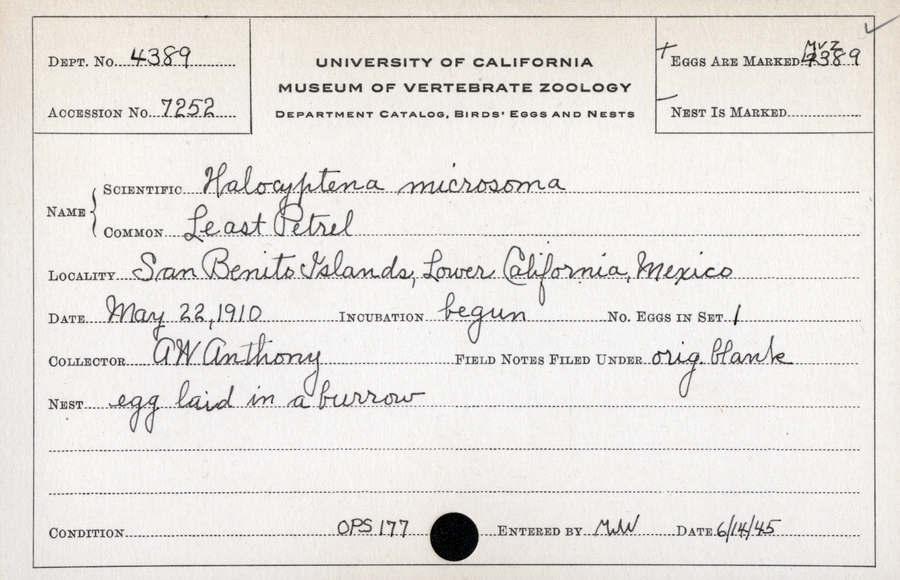 Dept. No. 4389
Accession No. 7252
UNIVERSITY OF CALIFORNIA
MUSEUM OF VERTEBRATE ZOOLOGY
Department Catalog, Birds' Eggs and Nests
+ Eggs Are Marked MVZ 4389
– Nest Is Marked
Name { Scientific Halocyptena microsoma
Common Least Petrel
Locality San Benito Islands, Lower California, Mexico
Date May 22, 1910 Incubation begun No. Eggs in Set 1
Collector AW Anthony Field Notes Filed Under orig. blank
Nest egg laid in a burrow
Condition OPS 177 Entered by MW Date 6/14/45